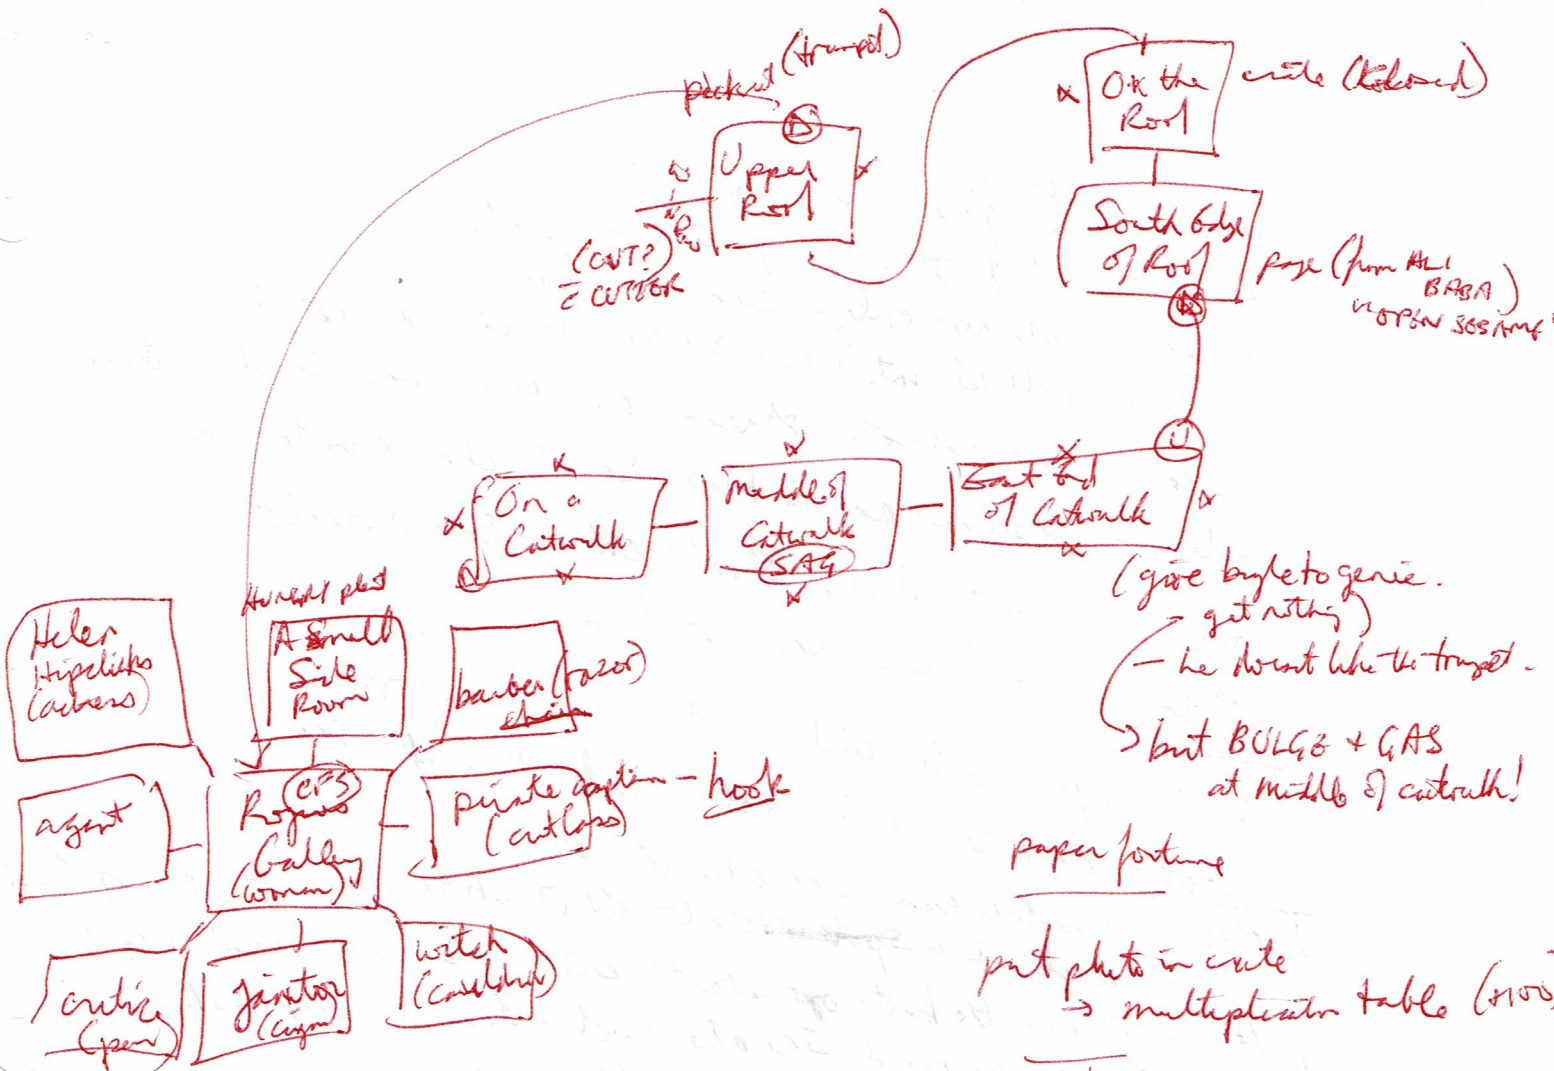 (trumpet)
D
Upper
Roof
(CUT?)
CUTTER
On the
Roof
crate
South Edge
of Roof
page (from ALI
BABA)
"OPEN SESAME"
U
On a
Catwalk
Middle of
Catwalk
SAG
East End
of Catwalk
(give bugle to genie.
get nothing)
- he doesn't like the trumpet.
but BULGE + GAS
at middle of catwalk!
Helen
(actress)
HUNGRY plant
A Small
Side
Room
barber (razor)
chair
agent
Rogues
Gallery
(woman)
pirate captain - hook
(cutlass)
critic
(pen)
janitor
witch
(cauldron)
paper fortune
put photo in crate
→ multiplication table